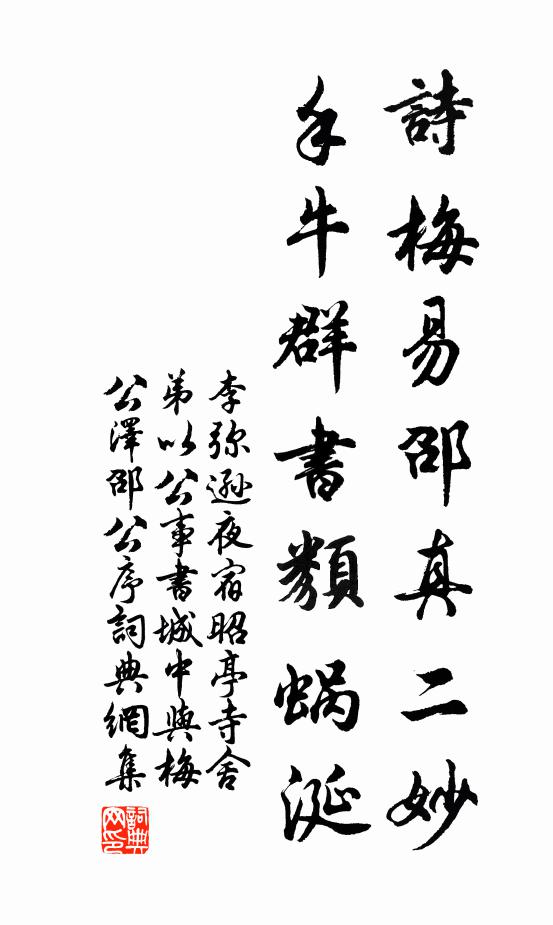 詩梅易邵真二妙
牛群書類蝸涎
李弥遜夜宿昭亭寺舍
弟以公事書城中與梅
公澤邵公序詞典網集
詞典
网印